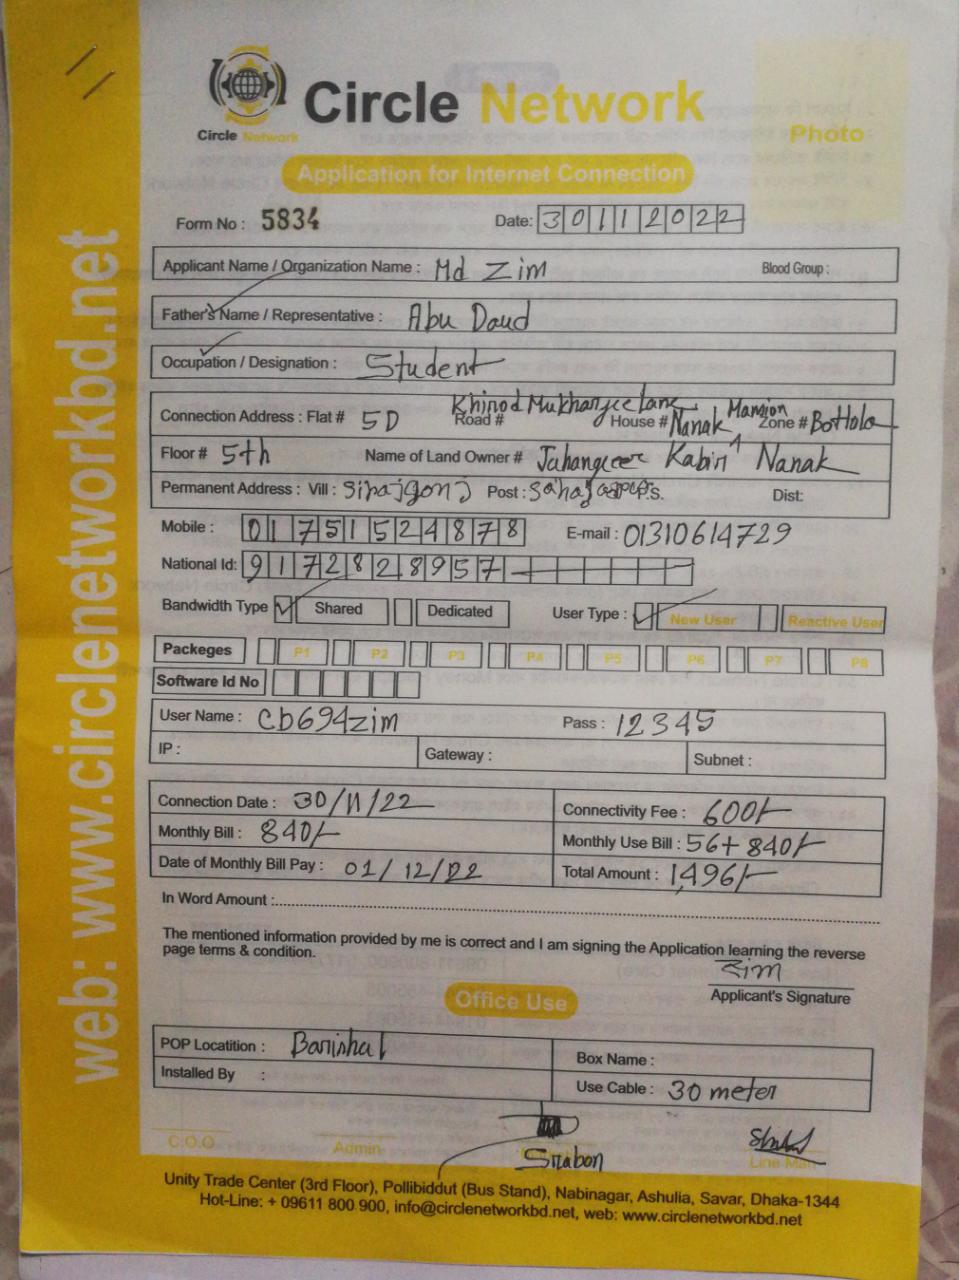 Circle Network
Circle Network
Photo
Application for Internet Connection
Form No : 5834 Date: 30112022
Applicant Name / Organization Name : Md Zim Blood Group :
Father's Name / Representative : Abu Daud
Occupation / Designation : Student
Connection Address : Flat # 5D Road # Khirod Mukharjee lane House # Nanak Mansion Zone # Bottola
Floor # 5th Name of Land Owner # Jahangeer Kabir Nanak
Permanent Address : Vill : Sirajgonj Post : P.S. Dist:
Mobile : 01751524878 E-mail : 01310614729
National Id: 9172828957
Bandwidth Type Shared Dedicated User Type : New User Reactive User
Packeges P1 P2 P3 P4 P5 P6 P7 P8
Software Id No
User Name : cb694zim Pass : 12345
IP : Gateway : Subnet :
Connection Date : 30/11/22 Connectivity Fee : 600/-
Monthly Bill : 840/- Monthly Use Bill : 56+ 840/-
Date of Monthly Bill Pay : 01/12/22 Total Amount : 1,496/-
In Word Amount :
The mentioned information provided by me is correct and I am signing the Application learning the reverse
page terms & condition.
Applicant's Signature
Office Use
POP Locatition : Barishal Box Name :
Installed By : Use Cable : 30 meter
Srabon
C.O.O Admin Line Man
Unity Trade Center (3rd Floor), Pollibiddut (Bus Stand), Nabinagar, Ashulia, Savar, Dhaka-1344
Hot-Line: + 09611 800 900, info@circlenetworkbd.net, web: www.circlenetworkbd.net
web: www.circlenetworkbd.net